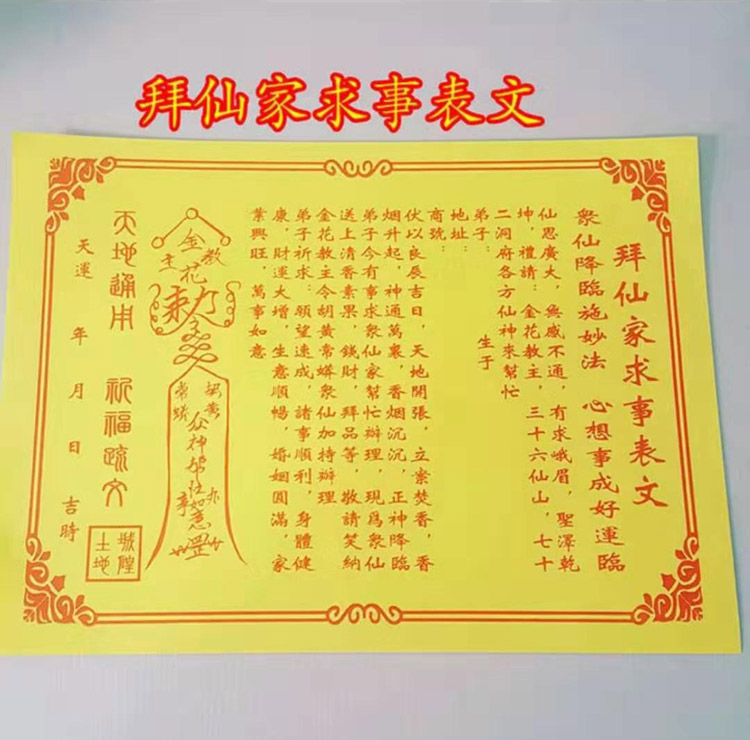 拜仙家求事表文
拜仙家求事表文
衆仙降臨施妙法 心想事成好運臨
仙恩廣大，無感不通，有求峨眉，聖澤乾
坤，禮請：金花教主，三十六仙山，七十
二洞府各方仙神來幫忙
弟子： 生于
地址：
商號：
伏以良辰吉日，天地開張，立案焚香，香
烟升起，神通萬裏，香烟沉沉，正神降臨
弟子今有事求衆仙家幫忙辦理，現爲衆仙
送上清香素果，錢財，拜品等，敬請笑納
金花教主令胡黃常蟒衆仙加持辦理
弟子祈求：願望速成，諸事順利，身體健
康，財運大增，生意順暢，婚姻圓滿，家
業興旺，萬事如意
金花教主
天地通用 祈福疏文
天運 年 月 日 吉時
城隍
土地